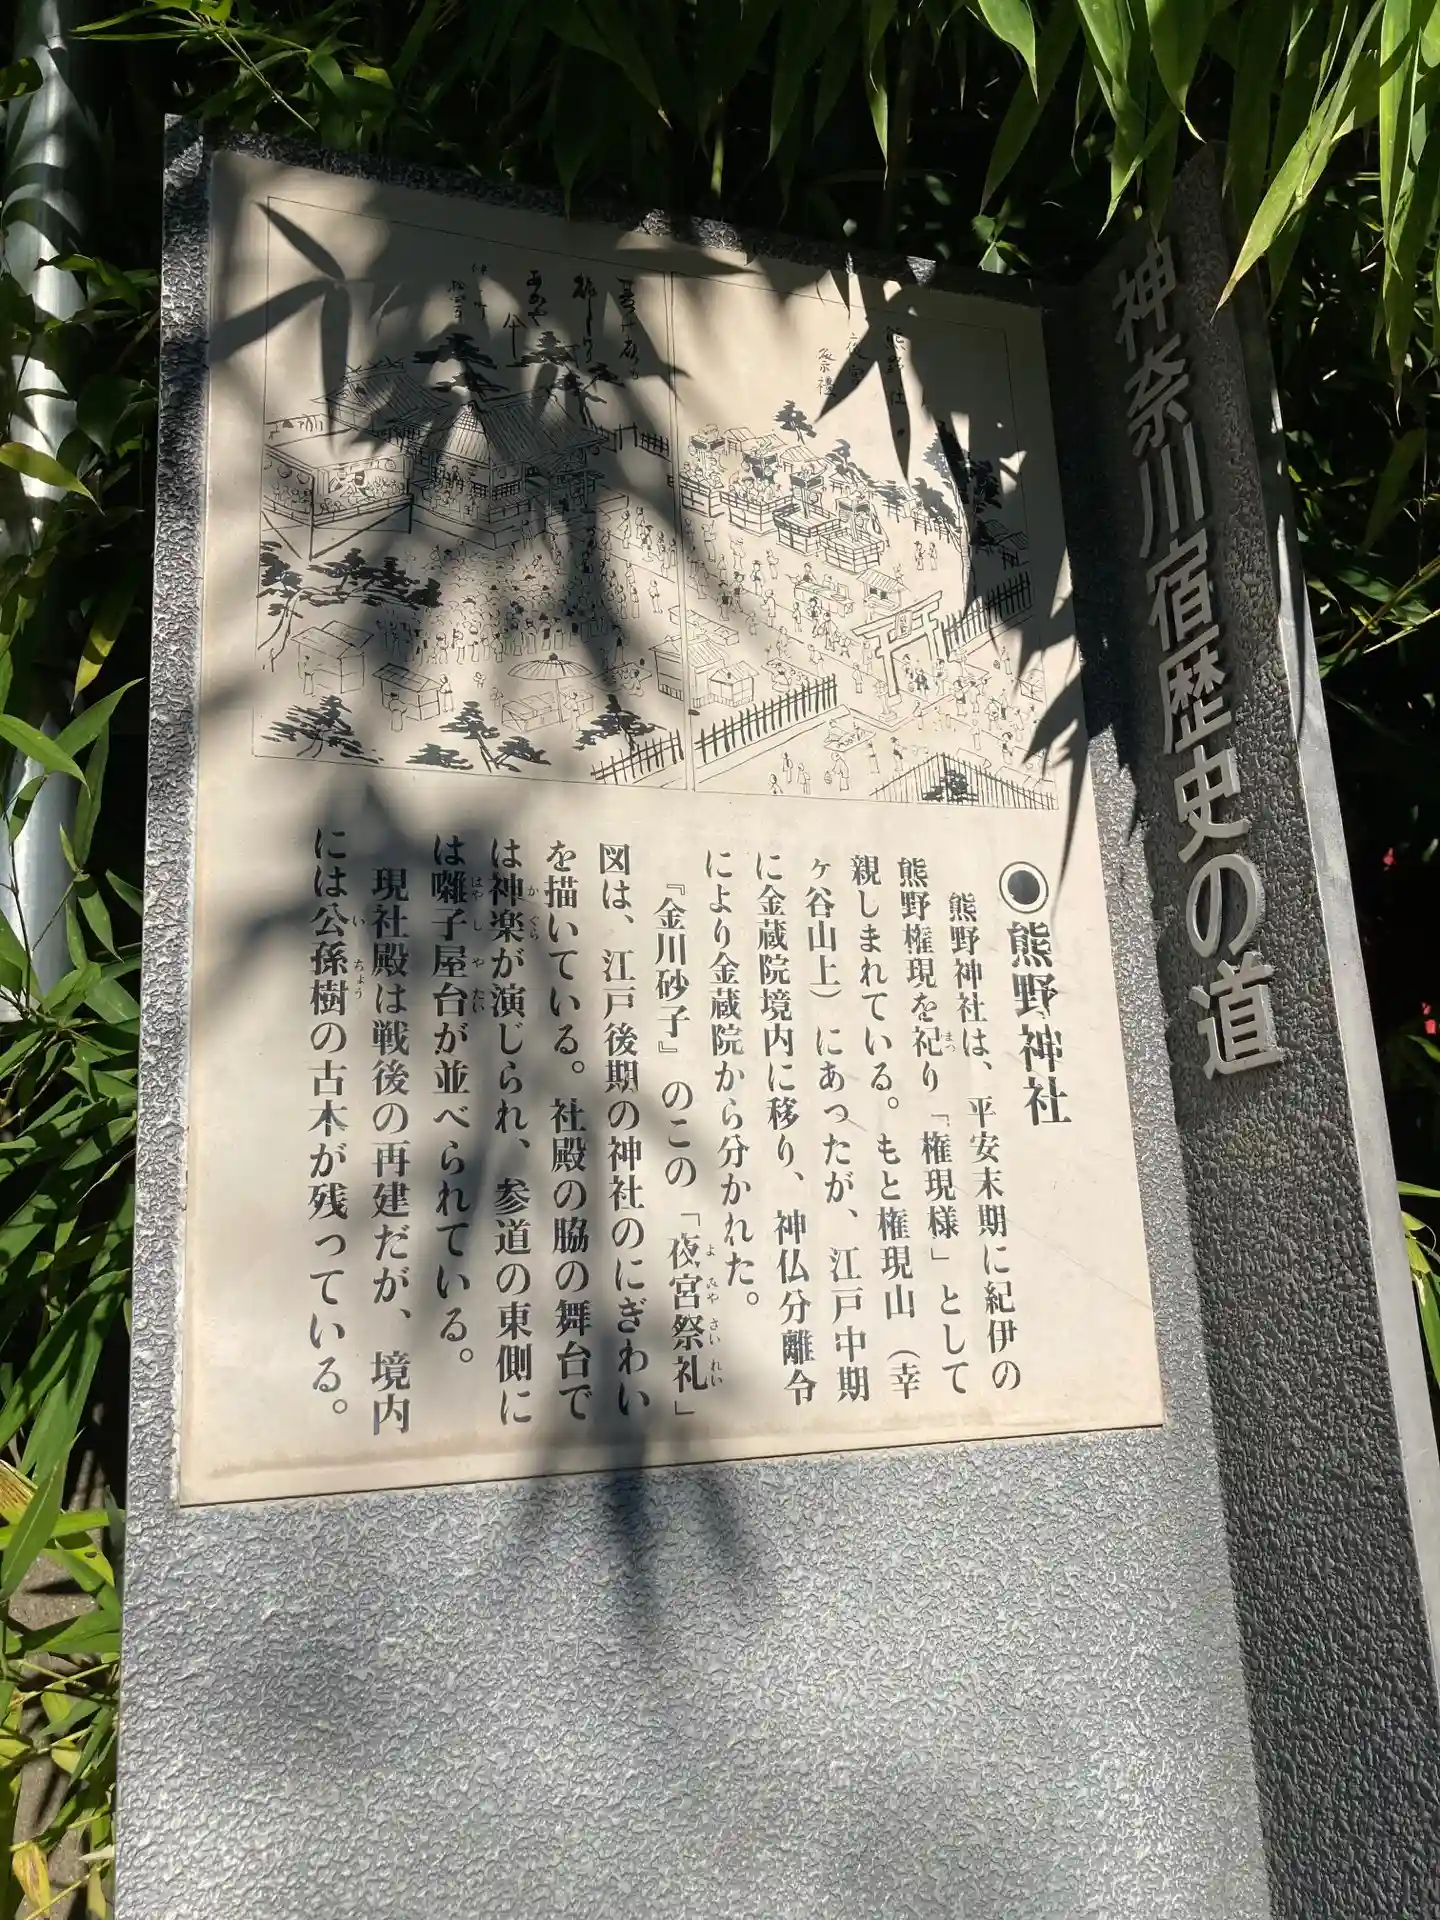 神奈川宿歴史の道
熊野社
夜宮
祭禮
熊野神社
熊野神社は、平安末期に紀伊の
熊野権現を祀り「権現様」として
親しまれている。もと権現山（幸
ヶ谷山上）にあったが、江戸中期
に金蔵院境内に移り、神仏分離令
により金蔵院から分かれた。
『金川砂子』のこの「夜宮祭礼」
図は、江戸後期の神社のにぎわい
を描いている。社殿の脇の舞台で
は神楽が演じられ、参道の東側に
は囃子屋台が並べられている。
現社殿は戦後の再建だが、境内
には公孫樹の古木が残っている。